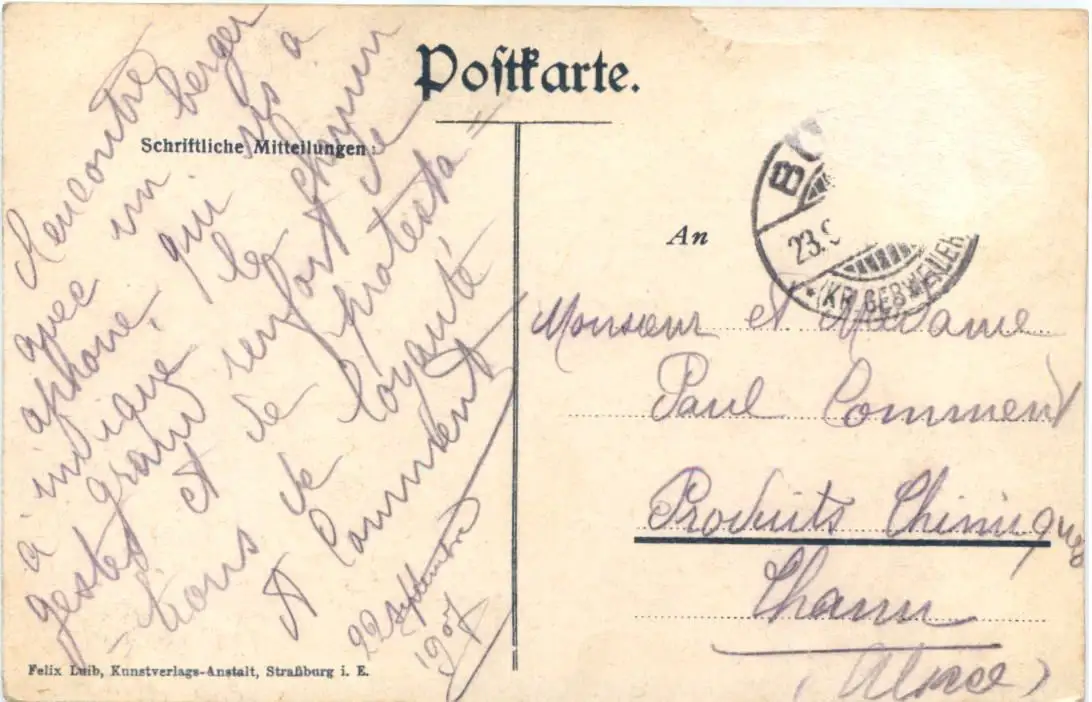 Postkarte.
Schriftliche Mitteilungen:
Rencontré
avec un berger
aphone, qui sus a
indiqué le chemin
à grand renfort de
gestes et de protesta=
=tions de loyauté
A Comment
22 septembre
1907
An
23.9
(KR. GEBWEILER)
Monsieur et Madame
Paul Comment
Produits Chimiques
Thann
(Alsace)
Felix Luib, Kunstverlags-Anstalt, Straßburg i. E.